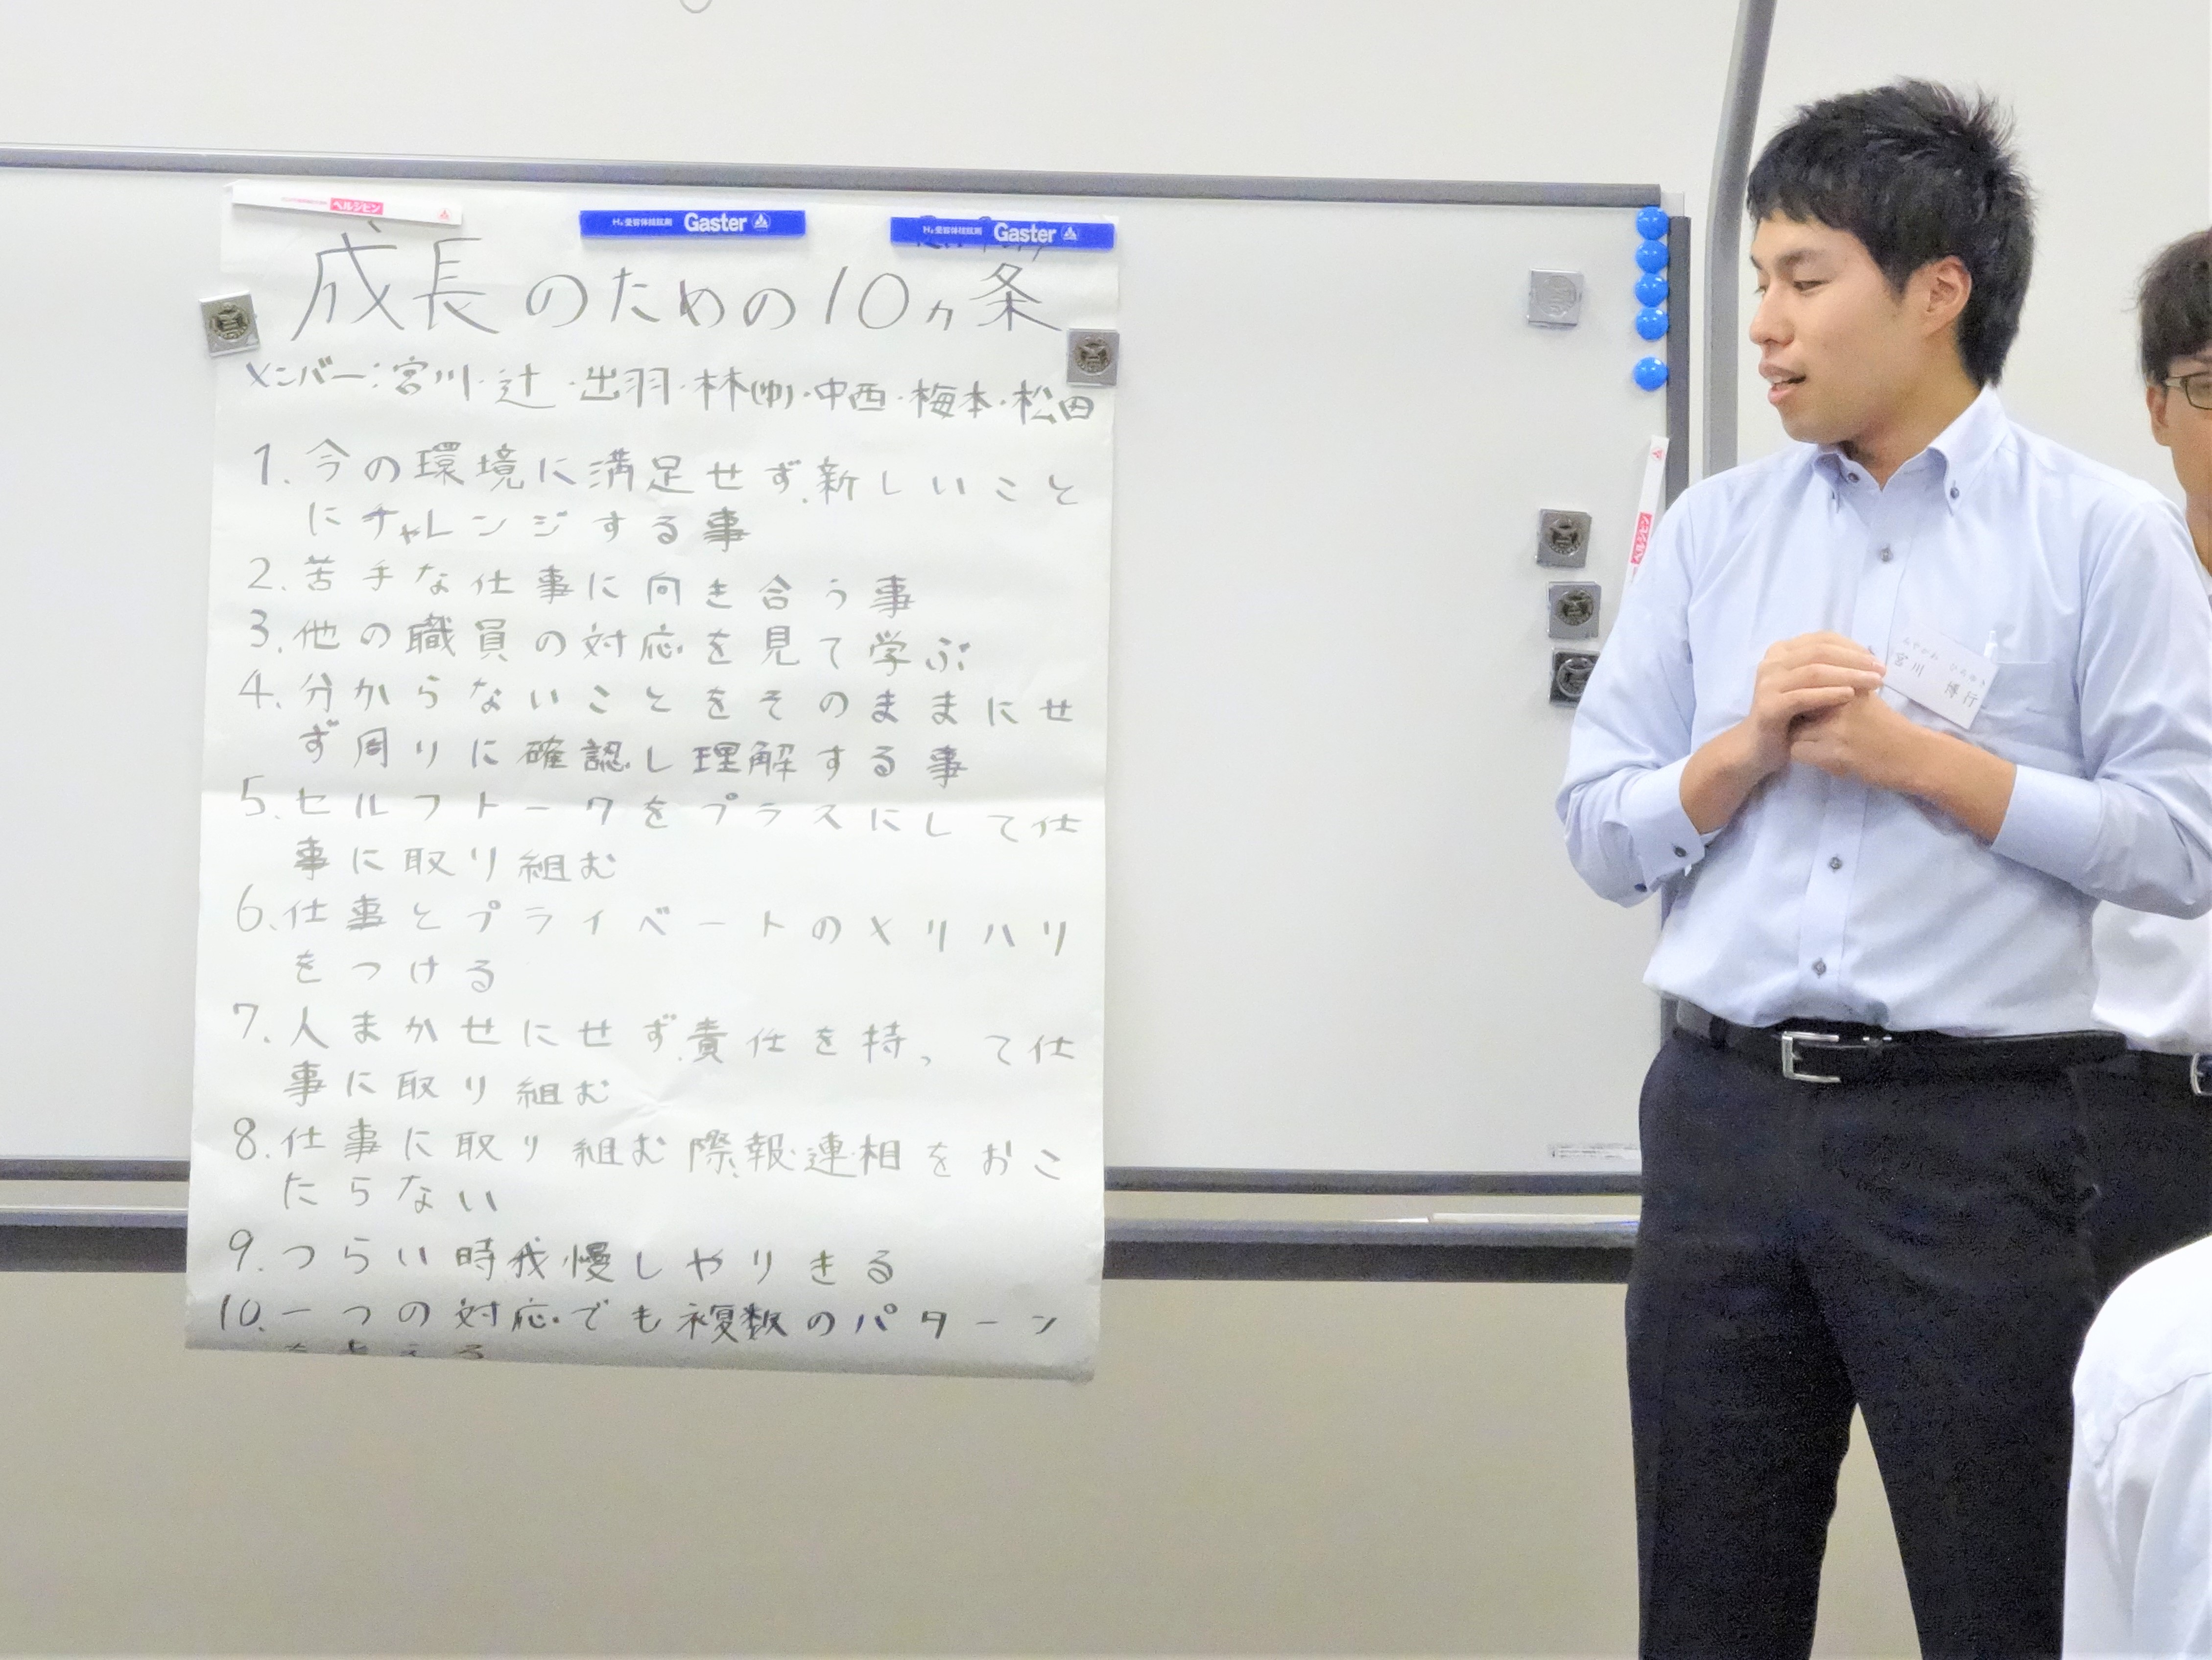 ヘルシピン
H₂受容体拮抗剤 Gaster
H₂受容体拮抗剤 Gaster
成長のための10ヵ条
メンバー:宮川・辻・出羽・林(ゆ)・中西・梅本・松田
1. 今の環境に満足せず、新しいこと
にチャレンジする事
2. 苦手な仕事に向き合う事
3. 他の職員の対応を見て学ぶ
4. 分からないことをそのままにせ
ず周りに確認し理解する事
5. セルフトークをプラスにして仕
事に取り組む
6. 仕事とプライベートのメリハリ
をつける
7. 人まかせにせず、責任を持って仕
事に取り組む
8. 仕事に取り組む際、報・連・相をおこ
たらない
9. つらい時我慢しやりきる
10. 一つの対応でも複数のパターン
を考える
ヘルシピン
宮川 博行